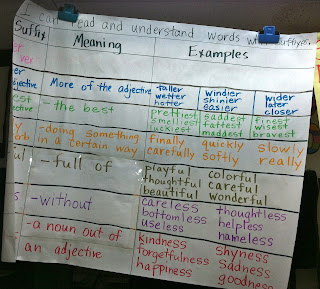 I can read and understand words with suffixes.
Suffix Meaning Examples
er
er
adjective More of the adjective taller windier wider
wetter shinier later
hotter easier closer
est
adjective -the best prettiest saddest finest
smelliest fattest wisest
luckiest maddest bravest
-doing something finally quickly slowly
in a certain way carefully softly really
ful -full of playful colorful
thoughtful careful
beautiful wonderful
-without careless thoughtless
bottomless helpless
useless nameless
-a noun out of kindness shyness
an adjective forgetfulness sadness
happiness goodness